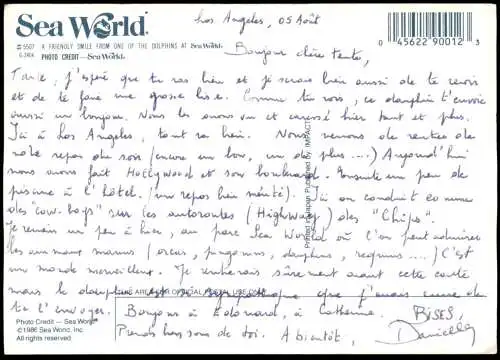 Sea World.
# 5507 A FRIENDLY SMILE FROM ONE OF THE DOLPHINS AT Sea World.
PHOTO CREDIT — Sea World.
0 45622 90012 3
Los Angeles, 05 Août
Bonjour chère tante,
J'espère que tu vas bien et je serais bien aussi de te revoir
et de te faire une grosse bise. Comme tu vois, ce dauphin t'envoie
aussi un bonjour. Nous les avons vu et caressé hier tant et plus.
Ici à Los Angeles, tout va bien. Nous venons de rentrer de
notre repas du soir (encore un bon, un de plus ....) Aujourd'hui
nous avons fait HOLLYWOOD et son boulevard. Ensuite un peu de
piscine à l'hôtel. (un repos bien mérité). Ici on conduit comme
des "cow-boys" sur les autoroutes (Highway) des "Chips".
Je reviens un peu à hier, au parc Sea World où l'on peut admirer
les animaux marins (orcas, pingouins, dauphins, requins ....) C'est
un monde merveilleux. Je rentrerais sûrement avant cette carte
mais le dauphin est si sympathique que j'avais envie de
te l'envoyer.
Bonjour à Edouard, à Catherine. BISES.
Prends bien soin de toi. A bientôt, Danielle
Printed in Japan Published by: IMPACT
AREA FOR OFFICIAL POSTAL USE ONLY
Photo Credit — Sea World
©1986 Sea World, Inc.
All rights reserved